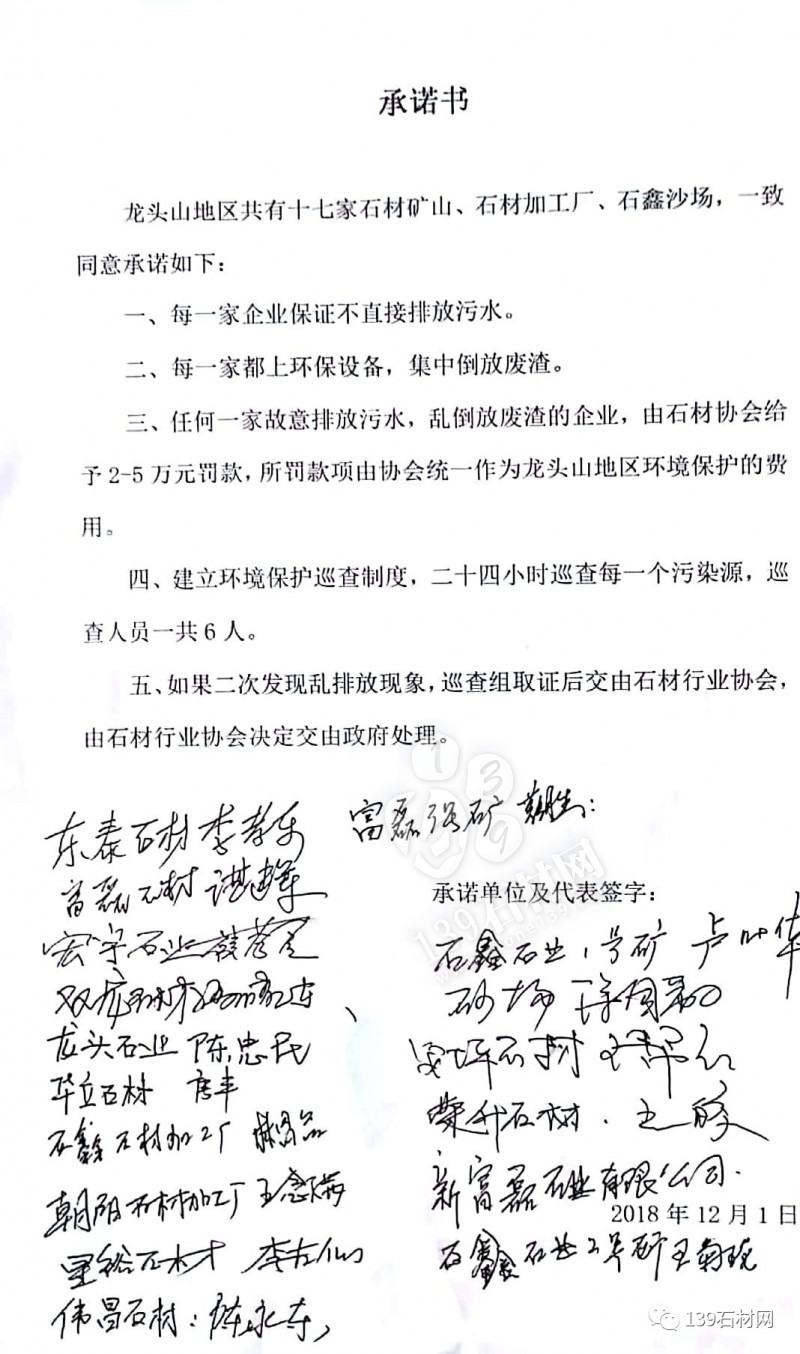 承诺书
龙头山地区共有十七家石材矿山、石材加工厂、石鑫沙场，一致
同意承诺如下：
一、每一家企业保证不直接排放污水。
二、每一家都上环保设备，集中倒放废渣。
三、任何一家故意排放污水，乱倒放废渣的企业，由石材协会给
予2-5万元罚款，所罚款项由协会统一作为龙头山地区环境保护的费
用。
四、建立环境保护巡查制度，二十四小时巡查每一个污染源，巡
查人员一共6人。
五、如果二次发现乱排放现象，巡查组取证后交由石材行业协会，
由石材行业协会决定交由政府处理。
富磊 矿
东泰石材 李
富磊石材
宏宇石业
龙头石业 陈忠民
华立石材 唐丰
石鑫石材加工厂
朝阳石材加工厂 王
石材 李
伟昌石材：陈永东
承诺单位及代表签字：
石鑫石业1号矿 卢 华
砂场
石材
荣升石材. 王
新富磊石业有限公司.
2018年12月1日
石鑫石业2号矿 王
139石材网
139石材网